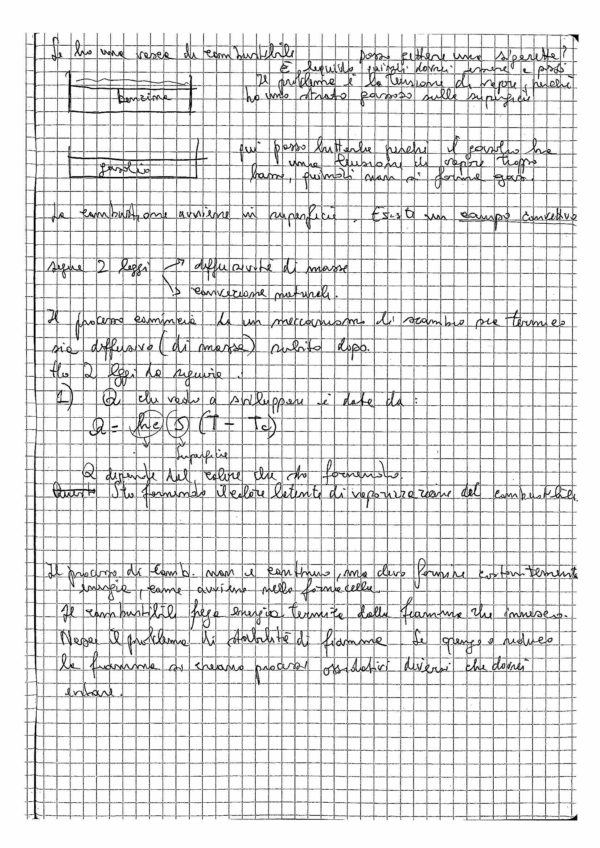 Se ho una vasca di combustibile posso gettare una sigaretta?
È liquido quindi dovrei essere a posto
benzina
Il problema è la tensione di vapore, perché
ho uno strato gassoso sulla superficie
qui posso buttarla perché il gasolio ha
una tensione di vapore troppo
gasolio
bassa, quindi non si forma gas.
La combustione avviene in superficie. Esiste un campo convettivo
segue 2 leggi → diffusività di massa
↘ convezione naturale.
Il processo comincia da un meccanismo di scambio sia termico
sia diffusivo (di massa) subito dopo.
Ho 2 leggi da seguire:
1) Q che vado a sviluppare è data da:
Q = hc S (T - Tc)
Superficie
Q dipende dal calore che sto fornendo.
Questo Sto fornendo il calore latente di vaporizzazione del combustibile.
Il processo di comb. non è continuo, ma devo fornire costantemente
energia, come avviene nella fornacella.
Il combustibile prende energia termica dalla fiamma che innesco.
Nasce il problema di stabilità di fiamma. Se spengo o riduco
la fiamma si creano processi ossidativi diversi che dovrei
evitare.